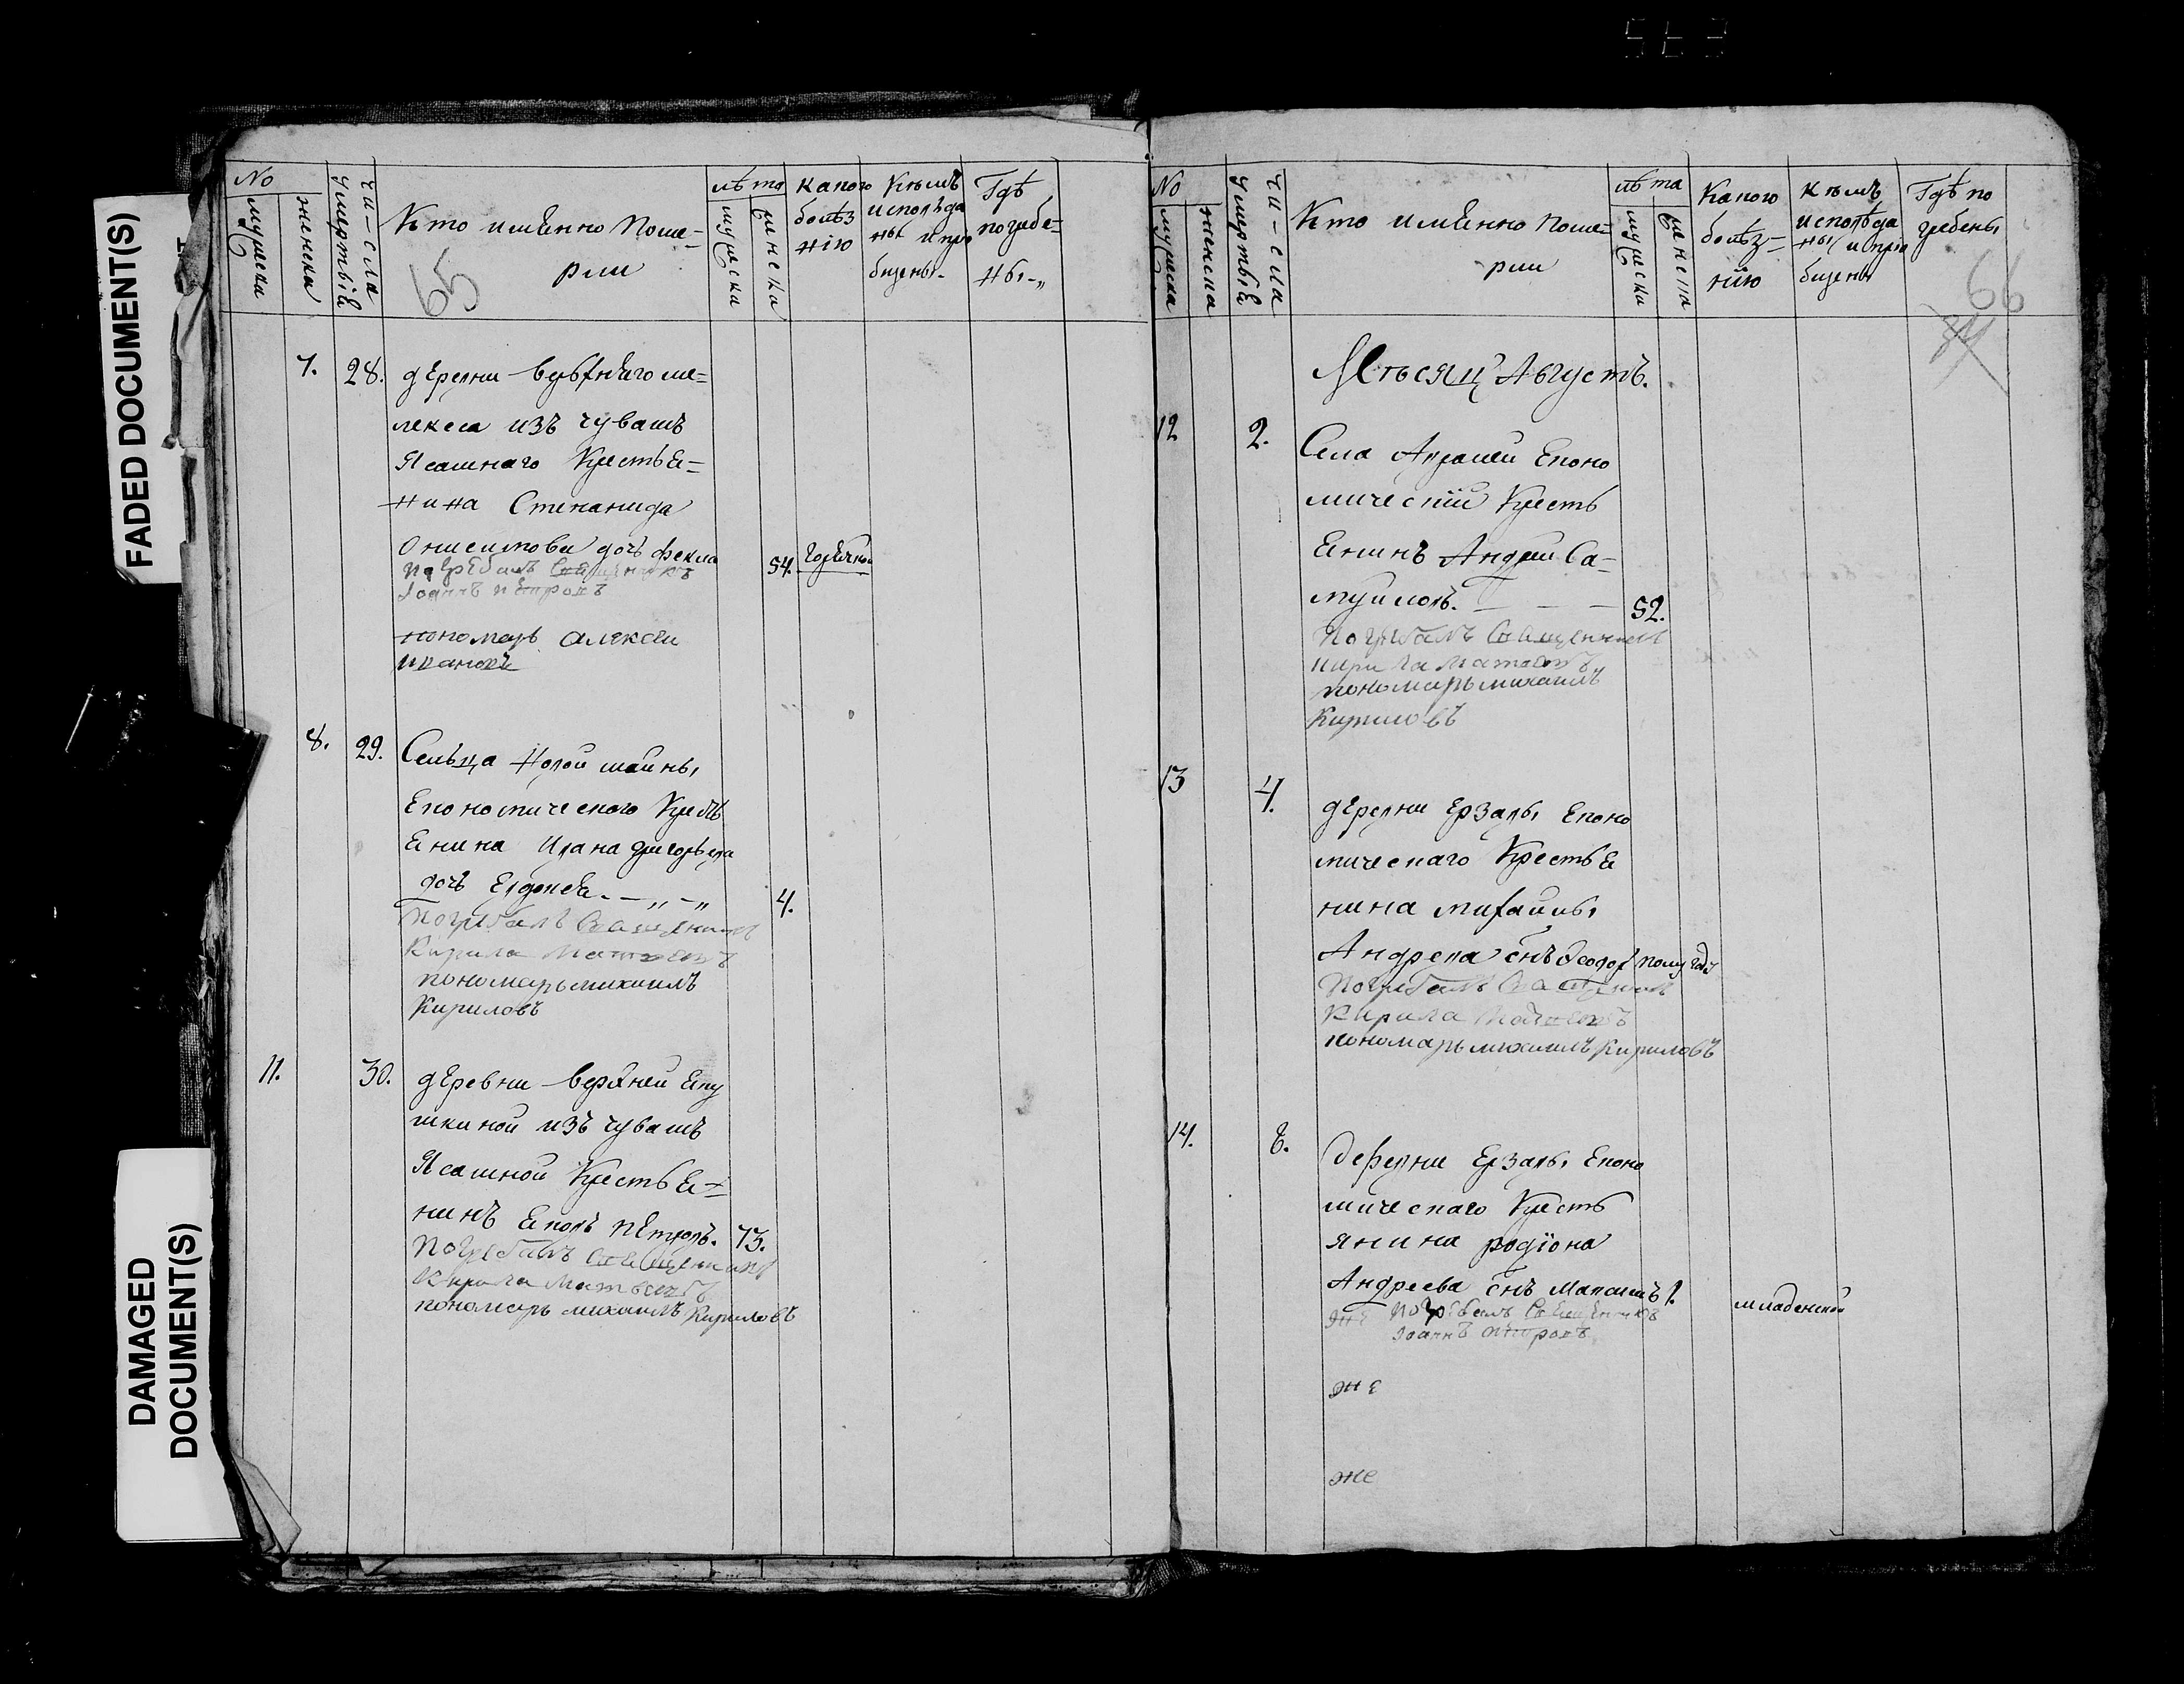 FADED DOCUMENT(S)
DAMAGED
DOCUMENT(S)
65
№
мужеска
женска
чи-сла
умертвiи
Кто имѣнно Поме=
рли
лѣта
мужеска
женска
Какого
болѣз
нiю
Кѣмъ
исповѣда
ны и прiо
бщены.
Гдѣ
погребе=
ны.
7. 28. дЕревни верхнЕго ме=
лекеса изъ чувашъ
Ясашнаго КрестьЕ=
нина Степанида
Онисимова дочь Фекла 54. Горячкой
погрЕбалъ СвЕщЕникъ
Iоаннъ пЕтровъ
пономарь алексеи
ивановъ
8. 29. Сельца Новой маины
Економического Крестъ
Енина Ивана григорьева
дочь Евдокея. 4.
Погребалъ СвЕщЕникъ
Кирила Матвеевъ
пономарь михаилъ
Кириловъ
11. 30. дЕревни верхней
шкиной изъ чувашъ
Ясашной КрестьЕ=
нинъ пЕтровъ. 73.
Погребалъ СвЕщЕникъ
Кирила Матвеевъ
пономарь михаилъ Кириловъ
66
№
мужеска
женска
чи-сла
умертвiи
Кто имЕнно Поме=
рли
лѣта
мужеска
женска
Какого
болѣз=
нiю
Кѣмъ
исповѣда
ны и прiо
бщены
Гдѣ по
гребены
Мѣсяцъ Августъ.
12 2. Села Еконо
мическiй Кресть
Енинъ Андреи Са=
муиловъ. 52.
Погребалъ СвЕщенникъ
Кирила Матвеевъ
пономарь михаилъ
Кириловъ
13 4. дЕревни Ерзавы Еконо
мическаго КрестьЕ
нина михаилы
Андреева снъ Феодоръ полу года
Погребалъ СвЕщеникъ
Кирила Матвеевъ
пономарь михаилъ Кириловъ
14. 8. деревни Ерзавы Еконо
мическаго Кресть
янина родiона
Андреева снъ Максимъ 1. младенской
же погрЕбалъ СвЕщЕникъ
Iоаннъ пЕтровъ
же
же